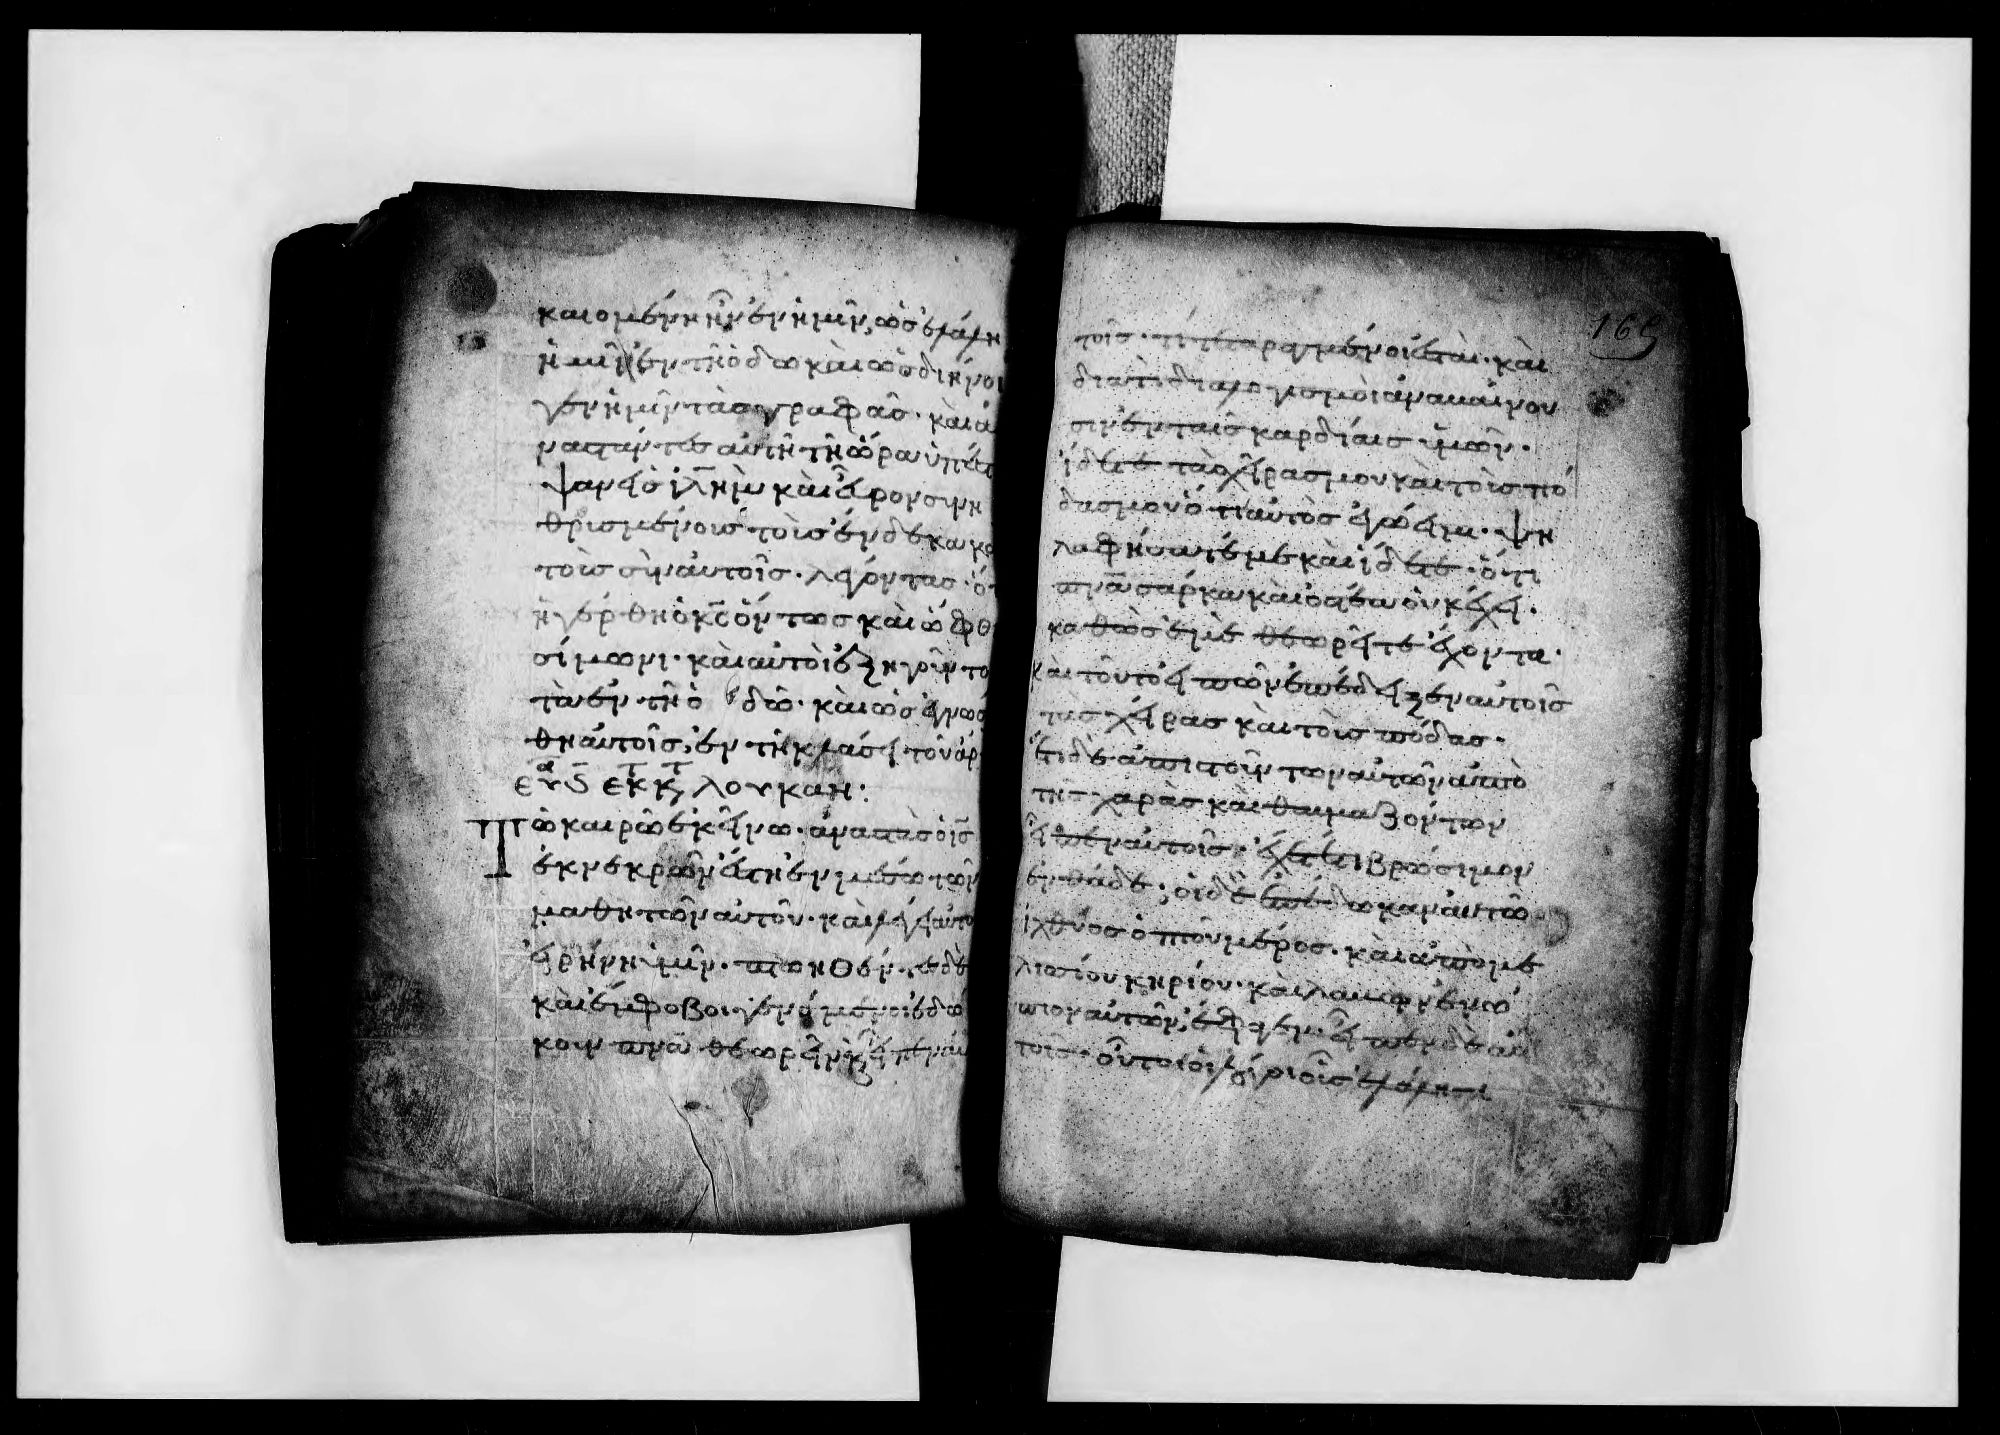 καιομένη ἦν ἐν ἡμῖν, ὡς ἐλάλη
ἡμῖν ἐν τῆ ὁδῶ καὶ ὡς διήνοι
γεν ἡμῖν τὰς γραφάς· καὶ ἀ
ναστάντες αὐτῆ τῆ ὥρα ὑπέστ
ψαν εἰς ἰλῆμ καὶ εὗρον συνη
θρισμένους τοὺς ἕνδεκα κα
τοὺς σὺν αὐτοῖς· λέγοντας ὅτ
ἠγέρθη ὁ κς ὄντως καὶ ὤφθ
σίμωνι· καὶ αὐτοὶ ἐξηγοῦντο
τὰ ἐν τῆ ὁδῶ· καὶ ὡς ἐγνώσ
θη αὐτοῖς, ἐν τῆ κλάσει τοῦ ἄρ
ευα ς εκ τ κτ λουκαν:
Τῶ καιρῶ ἐκείνω· ἀναστὰς ὁ ἰς
ἐκ νεκρῶν ἔστη ἐν μέσω τῶν
μαθητῶν αὐτοῦ· καὶ λέγει αὐτο
εἰρήνη ὑμῖν· πτοηθέντες δὲ
καὶ ἔμφοβοι γενόμενοι ἐδό
κουν πνα θεωρεῖν καὶ εἶπεν αὐ
165
τοῖς· τί τεταραγμένοι ἐστὲ· καὶ
διατί διαλογισμοὶ ἀναβαίνου
σιν ἐν ταῖς καρδίαις ὑμῶν·
ἴδετε τὰς χεῖρας μου καὶ τοὺς πό
δας μου ὅτι αὐτὸς ἐγώ εἰμι· ψη
λαφήσατέ με καὶ ἴδετε· ὅτι
πνα σάρκα καὶ ὀστέα οὐκ ἔχει·
καθὼς ἐμὲ θεωρεῖτε ἔχοντα·
καὶ τοῦτο εἰπὼν ἐπέδειξεν αὐτοῖς
τὰς χεῖρας καὶ τοὺς πόδας·
ἔτι δὲ ἀπιστούντων αὐτῶν ἀπὸ
τῆς χαρᾶς καὶ θαυμαζόντων
εἶπεν αὐτοῖς· ἔχετέ τι βρώσιμον
ἐνθάδε; οἱ δὲ ἐπέδωκαν αὐτῶ
ἰχθύος ὀπτοῦ μέρος· καὶ ἀπὸ με
λισσίου κηρίου· καὶ λαβὼν ἐνώ
πιον αὐτῶν, ἔφαγεν· εἶπεν δὲ αὐ
τοῖς· οὗτοι οἱ λόγοι οὓς ἐλάλησα